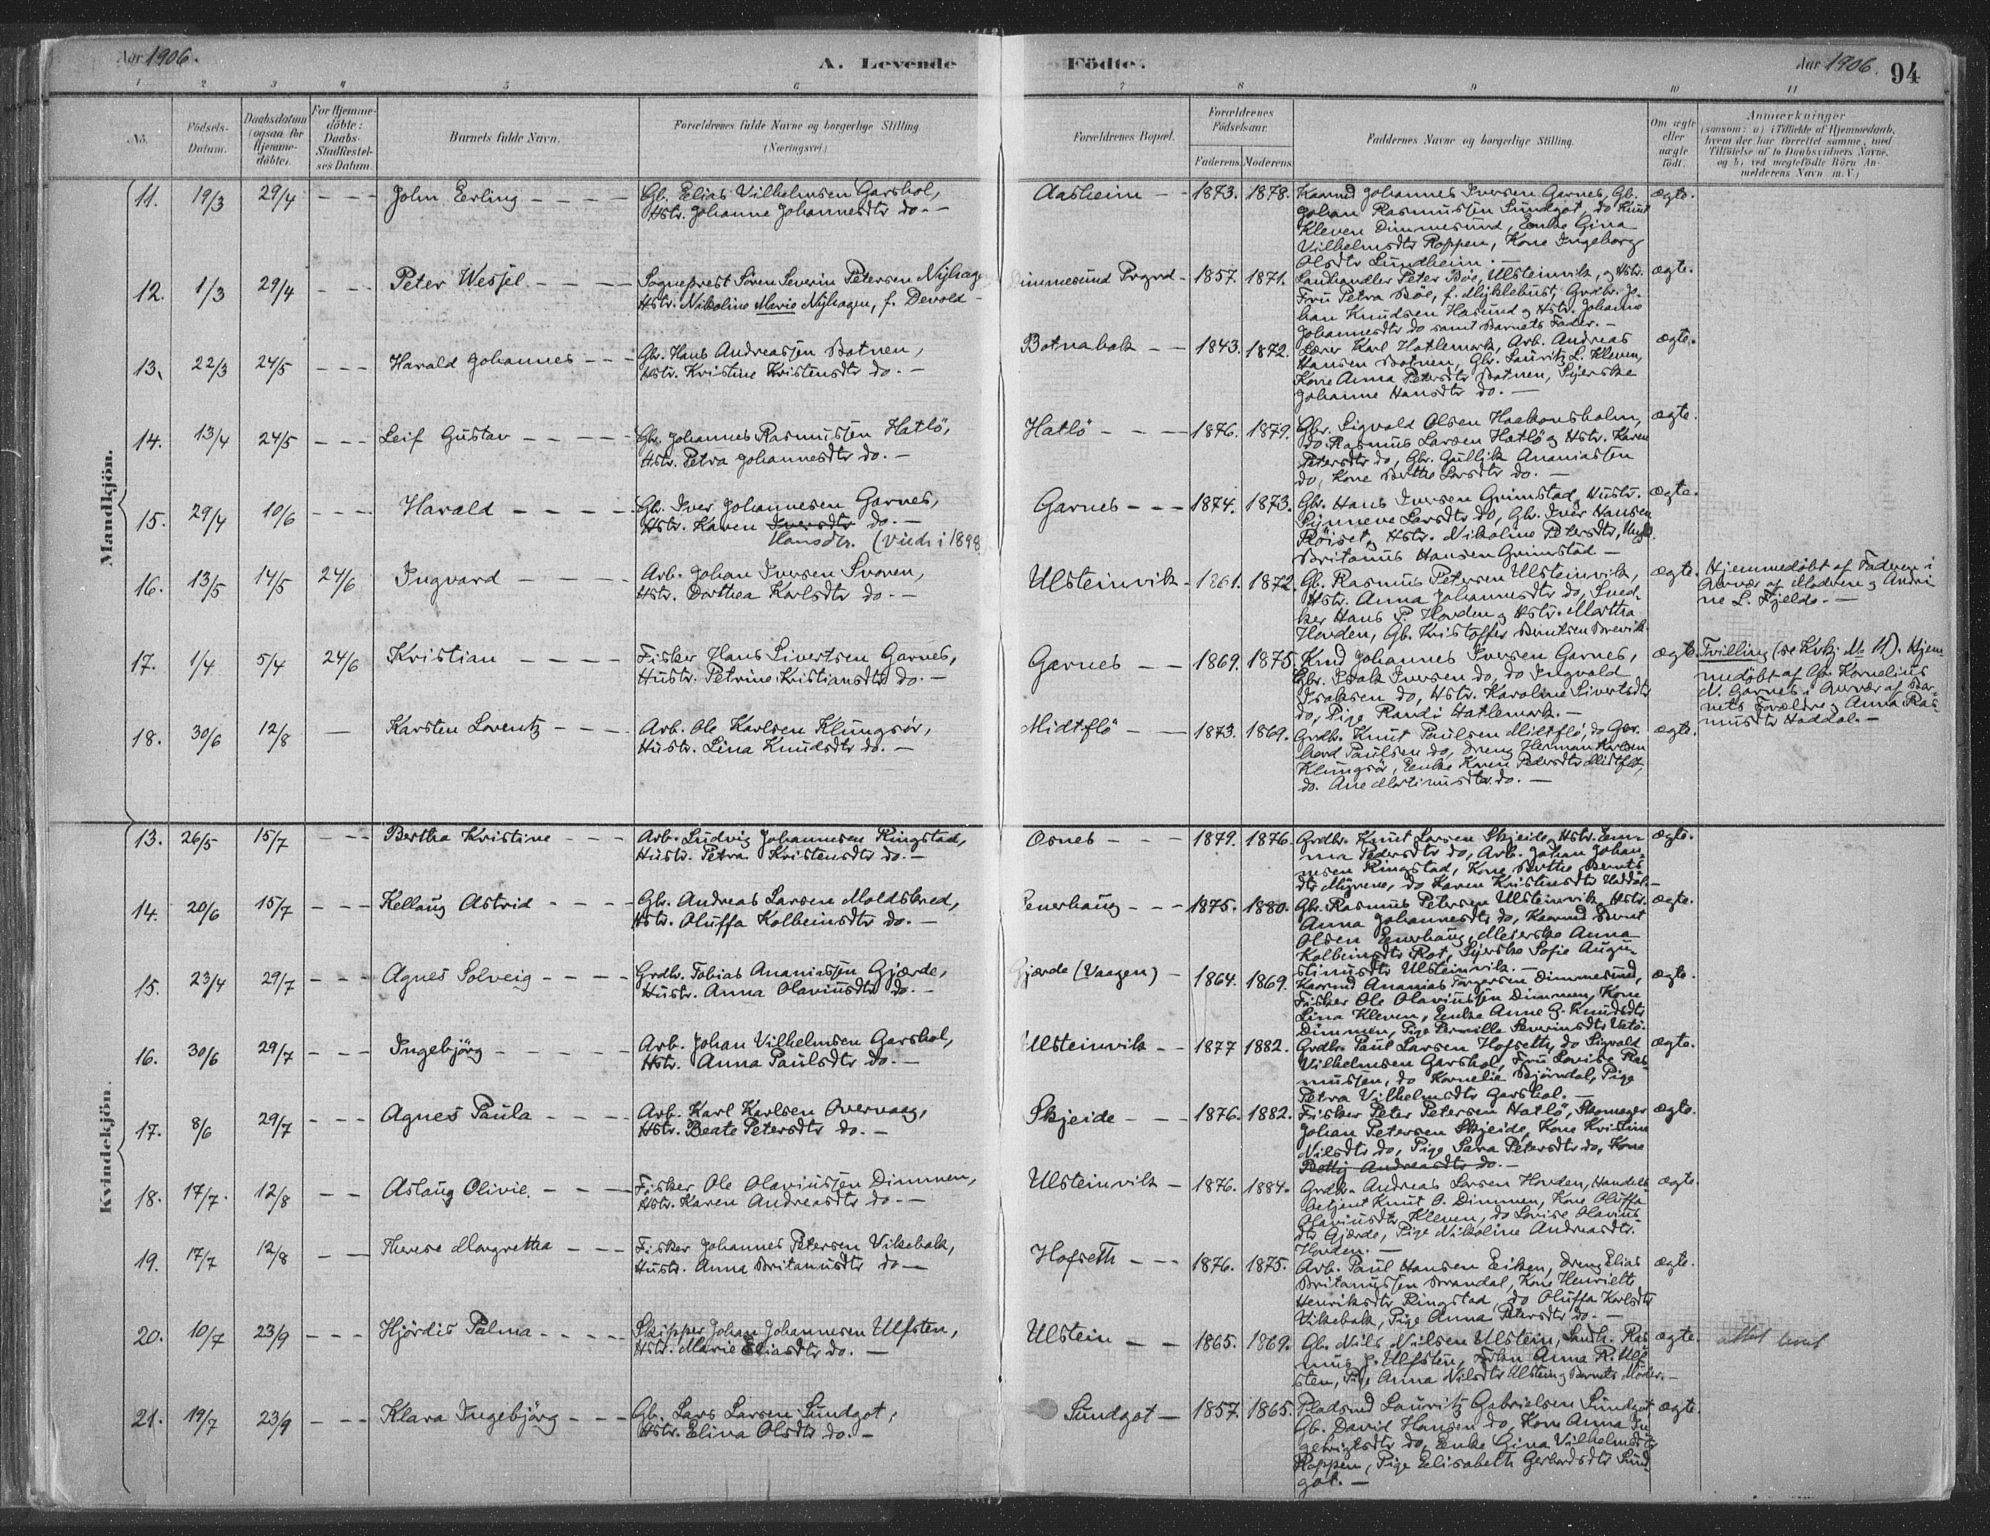 Aar 1906.
A. Levende Födte.
Aar 1906. 94
1 2 3 4 5 6 7 8 9 10 11
No. Födsels-Datum. Daabsdatum (ogsaa for Hjemmedöbte). For Hjemmedöbte: Daabs-Stadfestelses Datum. Barnets fulde Navn. Forældrenes fulde Navne og borgerlige Stilling. (Næringsvej.) Forældrenes Bopæl. Forældrenes Födselsaar. Faderens Moderens. Faddernes Navne og borgerlige Stilling. Om ægte eller uægte födt. Anmærkninger
Mandkjön.
11. 19/3 29/4 - - - John Erling - - - - Gb. Elias Vilhelmsen Garshol, Aasheim - - 1873. 1878. Kaarmd Johannes Iversen Garnes, Gb. ægte.
Hstr. Johanne Johannesdtr do. -
Johan Rasmussen Sundgot, do Knut
Kleven Dimmesund, Enke Gina
Vilhelmsdtr Roppen, Kone Ingeborg
Olsdtr Sundheim. -
12. 1/3 29/4 - - - Peter Wessel - - - - Sogneprest Sören Severin Petersen Nyhagen Dimmesund Prgrd - 1857. 1871. Landhandler Peter Böe, Ulsteinvik, og Hstr. ægte.
Hstr. Nikoline Marie Nyhagen, f. Devold -
Fru Petra Böe, f. Myklebust, Grdbr. Jo-
han Knudsen Hasund og Hstr. Johanne
Johannesdtr do samt Barnets Fader. -
13. 22/3 24/5 - - - Harald Johannes - - - Gbr. Hans Andreassen Botnen, Botnabak - - 1843. 1872. Lærer Karl Hatlemark, Arb. Andreas ægte.
Hstr. Kristine Kristensdtr do. -
Hansen Botnen, Gbr. Lauritz L. Kleven,
Kone Anna Petersdtr Botnen, Syerske
Johanne Hansdtr do. -
14. 13/4 24/5 - - - Leif Gustav - - - - Gbr. Johannes Rasmussen Hatlö, Hatlö - - - 1876. 1879. Gbr. Sigvald Olsen Haakonsholm, ægte.
Hstr. Petra Johannesdtr do. -
do. Rasmus Larsen Hatlö og Hstr. Karen
Petersdtr do, Gbr. Gullik Ananiassen
do, Kone Berthe Larsdtr do. -
15. 29/4 10/6 - - - Harald - - - - Gb. Iver Johannesen Garnes, Garnes - - - 1874. 1873. Gbr. Hans Iversen Grimstad, Hustr. ægte.
Hstr. Karen Iversdtr do. -
Hansdtr. (Viede i 1898
Synneve Larsdtr do, Gbr. Iver Hansen
Röiset og Hstr. Nikoline Petersdtr, Ungk.
Britanus Hansen Grimstad -
16. 13/5 14/5 24/6 Ingvard - - - - Arb. Johan Iversen Svanen, Ulsteinvik - 1861. 1872. Gb. Rasmus Petersen Ulsteinvik, ægte. Hjemmedöbt af Faderen i
Hstr. Dorthea Karlsdtr do. -
Hstr. Anna Johannesdtr do, Sned-
ker Hans P. Hovden og Hstr. Martha
Hovden, Gb. Kristoffer Berntsen Brevik.
Nærvær af Moderen og Andri
ne L. Fjelde. -
17. 1/4 5/4 24/6 Kristian - - - - Fisker Hans Sivertsen Garnes, Garnes - - 1869. 1875. Kmd Johannes Iversen Garnes, ægte. Tvilling (se Kvkj. No 11). Hjem-
Hustr. Petrine Kristiansdtr do. -
Gbr. Isak Iversen do, do Ingvald
Isaksen do, Hstr. Karoline Sivertsdtr
do, Pige Randi Hatlemark. -
medöbt af Gbr. Kornelius
N. Garnes i Nærvær af Bar-
nets Forældre og Anna Ras-
musdtr Haddal. -
18. 30/6 12/8 - Karsten Lorentz - - - Arb. Ole Karlsen Klungsör, Midtflö - - 1873. 1869. Grdbr. Knut Paulsen Midtflö, do Ger- ægte.
Hustr. Lina Knudsdtr do. -
hard Paulsen do, Dreng Herman Karlsen
Klungsör, Enke Karen Pedersdtr Midtflö,
do. Ane Martinusdtr do. -
Kvindekjön.
13. 26/5 15/7 - - - Bertha Kristine - - - Arb. Ludvig Johannesen Ringstad, Osnes - - 1879. 1876. Grdbr. Knut Larsen Skjeide, Hstr. Em- ægte.
Hustr. Petra Kristensdtr do. -
ma Pedersdtr do, Arb. Johan Johan-
nesen Ringstad, Kone Berthe Bernts-
dtr Myrene, do Karen Kristensdtr Haddal. -
14. 20/6 15/7 - - - Kellaug Astrid - - - - Gbr. Andreas Larsen Moldskred, Enerhaug - - - 1875. 1880. Gbr. Rasmus Petersen Ulsteinvik, Hstr. ægte.
Hstr. Oluffa Kolbeinsdtr do. -
Anna Johannesdtr do, Kaarmd Bernt
Olsen Enerhaug, Meierske Anna
Kolbeinsdtr Rot, Syerske Sofie Augu-
stinusdtr Ulsteinvik. -
15. 23/4 29/7 - - - Agnes Solveig - - - - Grdbr. Tobias Ananiassen Gjærde, Gjærde (Vaagen) - 1864. 1869. Kaarmd Ananias Torgersen Dimmesund, ægte.
Hustr. Anna Olaviusdtr do. -
Fisker Ole Olaviussen Dimmen, Kone
Lina Kleven, Enke Anne G. Knudsdtr
Dimmen, Pige Pernille Severinsdtr
16. 30/6 29/7 - - - Ingebjörg - - - - - Arb. Johan Vilhelmsen Garshol, Ulsteinvik - - 1877 1882. Grdbr. Paul Larsen Hofseth, do Sigvald ægte.
Hstr. Anna Paulsdtr do. -
Vilhelmsen Garshol, Fru Lovise Ras-
mussen, do Kornelie Björndal, Pige
Petra Vilhelmsdtr Garshol. -
17. 8/6 29/7 - - - Agnes Paula - - - - Arb. Karl Karlsen Overvaag, Skjeide - - - 1876. 1882. Fisker Peter Petersen Hatlö, Skomager ægte.
Hstr. Beate Petersdtr do. -
Johan Petersen Skjeide, Kone Kristine
Nilsdtr do, Pige Sara Petersdtr do, Kone
Betty Andreasdtr do. -
18. 17/7. 12/8 - - Aslaug Olivie. - - - - Fisker Ole Olaviussen Dimmen, Ulsteinvik - 1876. 1884. Grdbr. Andreas Larsen Hovden, Handels- ægte.
Hstr. Karen Andreasdtr do. -
betjent Knut O. Dimmen, Kone Oluffa
Olaviusdtr Kleven, do Lovise Olavius
dtr Gjærde, Pige Nikoline Andreasdtr.
Hovden. -
19. 17/7 12/8 - - Therese Margretha - - - Fisker Johannes Petersen Vikebak, Hofseth - - - 1876. 1875. Arb. Paul Hansen Eiken, Dreng Elias ægte.
Hustr. Anna Britanusdtr do -
Britanussen Brandal, Kone Henriette
Henriksdtr Ringstad, do Oluffa Karlsdtr
Vikebak, Pige Anna Petersdtr do. -
20. 10/7 23/9 - - - Hjördis Palma - - - - - Skipper Johan Johannesen Ulfsten, Ulstein - - 1865. 1869. Gb. Nils Nilsen Ulstein, Landh. Ras ægte. attest
Hstr. Marie Eliasdtr do. -
mus J. Ulfsten, Frkn Anna R. Ulf
sten, Pige Anna Nilsdtr Ulstein og Barnets Moder. -
21. 19/7 23/9 - - - Klara Ingebjörg - - - Gb. Lars Larsen Sundgot, Sundgot - 1857. 1865. Pladsmd Lauritz Gabrielsen Sundgot ægte.
Hstr. Elina Olsdtr do. -
Gb. David Hansen do, Kone Anna In-
gebrigtsdtr do, Enke Gina Vilhelmsdtr
Roppen, Pige Elisabeth Gerhardsdtr Sund-
got. -